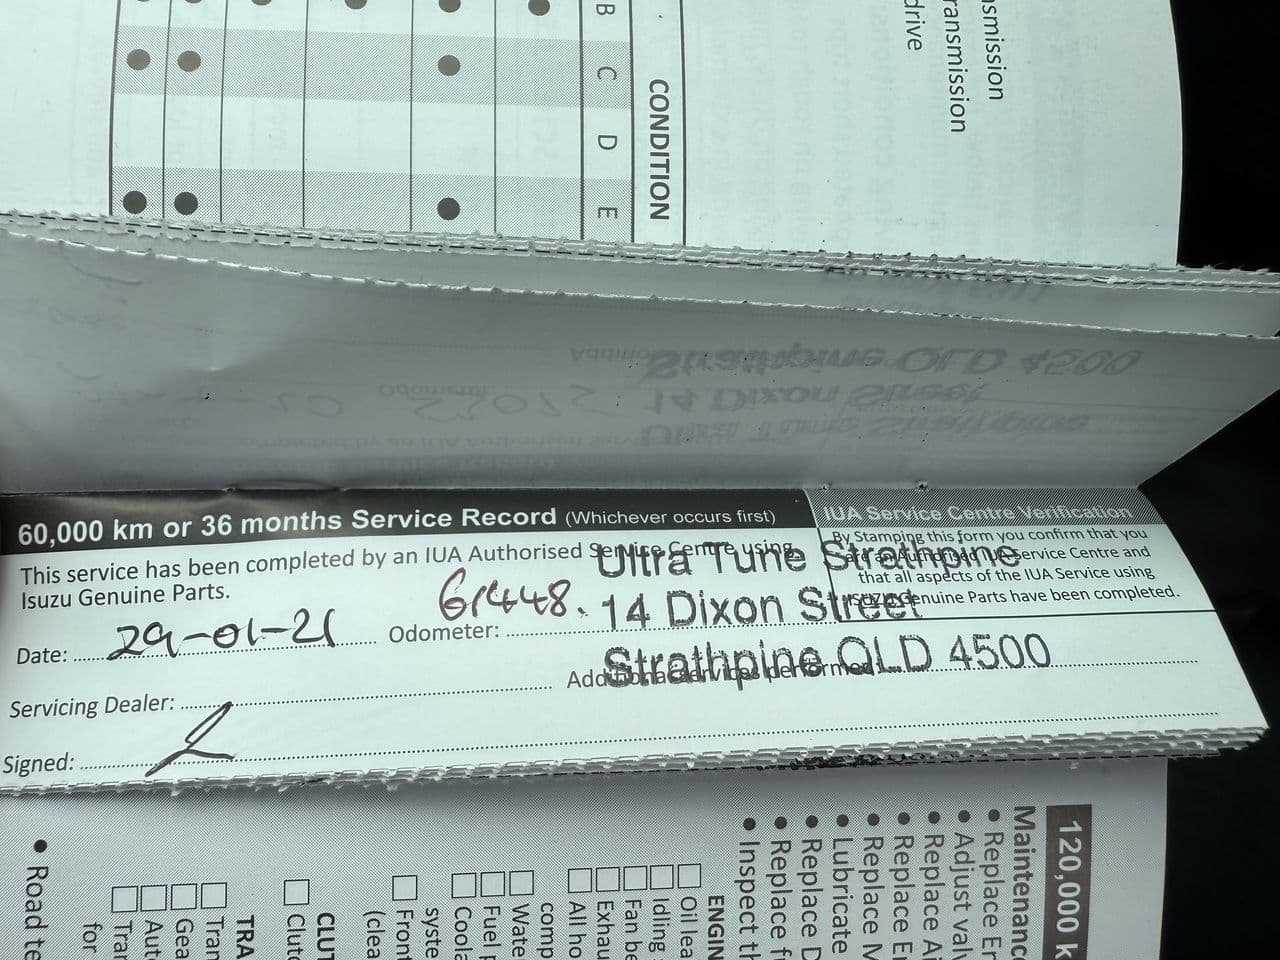 smission
ransmission
drive
CONDITION
B C D E
60,000 km or 36 months Service Record (Whichever occurs first)
IUA Service Centre Verification
This service has been completed by an IUA Authorised Service Centre using
Isuzu Genuine Parts.
By Stamping this form you confirm that you
Service Centre and
that all aspects of the IUA Service using
Genuine Parts have been completed.
Ultra Tune Strathpine
14 Dixon Street
Strathpine QLD 4500
Date: 29-01-21 Odometer: 61448.
Servicing Dealer:
Additional services performed:
Signed:
120,000 k
Maintenanc
• Replace En
• Adjust valv
• Replace Ai
• Replace Er
• Replace M
• Lubricate
• Replace D
• Replace f
• Inspect th
ENGIN
Oil lea
Idling
Fan be
Exhau
All ho
comp
Wate
Fuel
Coola
syste
Front
(clea
CLUT
Clutc
TRA
Tran
Gea
Aut
Tran
for
• Road te